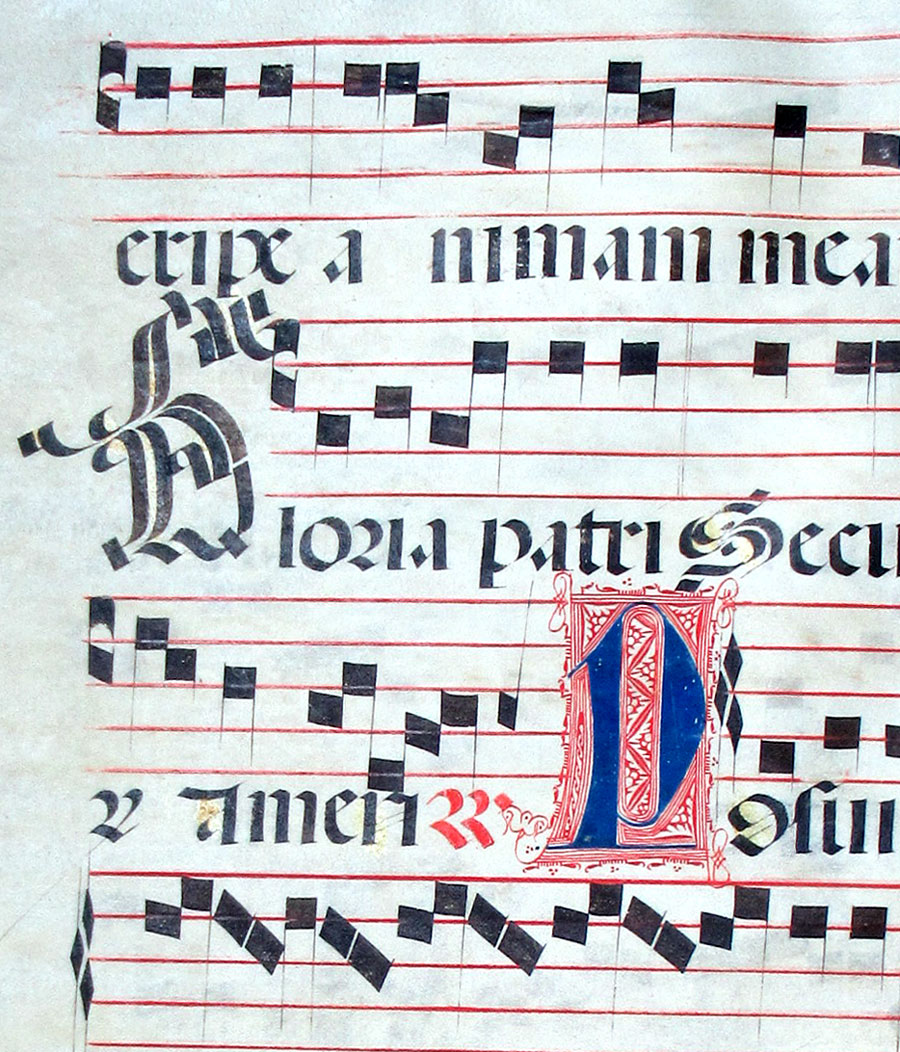 eripe a nimam mea
Gloria patri Secu
Amen Posui